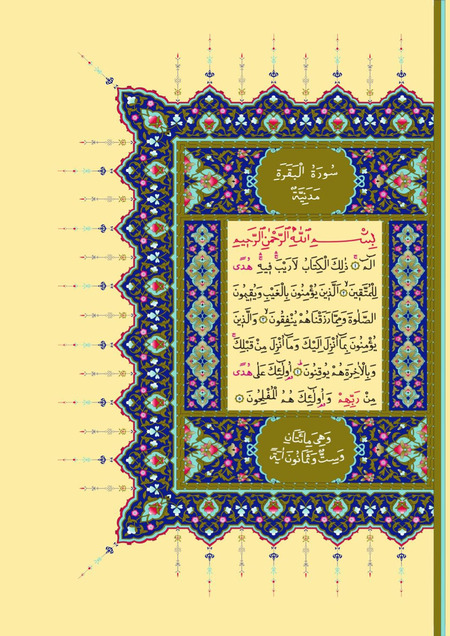 سُورَةُ الْبَقَرَةِ
مَدَنِيَّةٌ
بِسْمِ اللّٰهِ الرَّحْمٰنِ الرَّحِيمِ
الٓمٓ ۝١ ذٰلِكَ الْكِتَابُ لَا رَيْبَ ۛ فِيهِ ۛ هُدًى
لِلْمُتَّقِينَ ۝٢ اَلَّذِينَ يُؤْمِنُونَ بِالْغَيْبِ وَيُقِيمُونَ
الصَّلٰوةَ وَمِمَّا رَزَقْنَاهُمْ يُنْفِقُونَ ۝٣ وَالَّذِينَ
يُؤْمِنُونَ بِمَٓا اُنْزِلَ اِلَيْكَ وَمَٓا اُنْزِلَ مِنْ قَبْلِكَ ۚ
وَبِالْاٰخِرَةِ هُمْ يُوقِنُونَ ۝٤ اُولٰٓئِكَ عَلٰى هُدًى
مِنْ رَبِّهِمْ وَاُولٰٓئِكَ هُمُ الْمُفْلِحُونَ ۝٥
وَهِيَ مِائَتَانِ
وَسِتٌّ وَثَمَانُونَ اٰيَةً